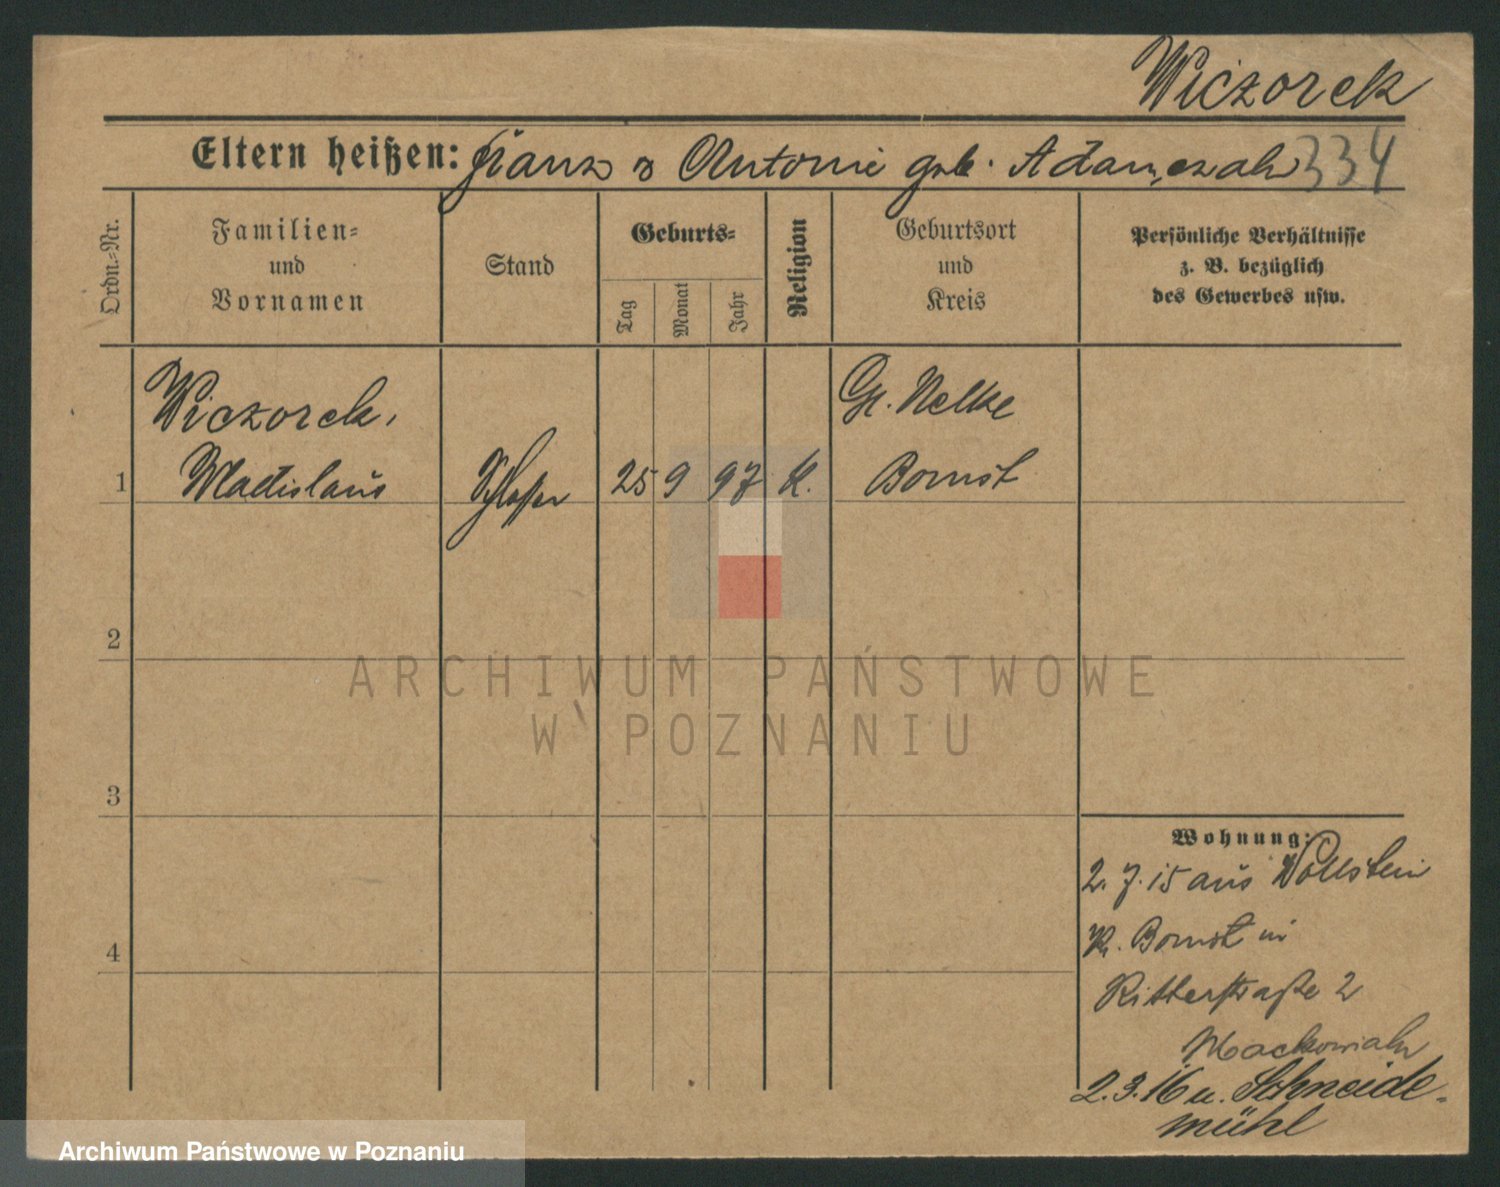 Wiczorek
Eltern heißen: Franz u Antonie geb. Adamczak 334
Ordn.-Nr.
Familien-
und
Vornamen
Stand
Geburts-
Tag
Monat
Jahr
Religion
Geburtsort
und
Kreis
Persönliche Verhältnisse
z. B. bezüglich
des Gewerbes usw.
Wiczorek,
Gr. Nelke
1 Wladislaus Schlosser 25 9 97 K. Bomst
2
3
4
Wohnung:
2. 7. 15 aus Wollstein
Kr. Bomst in
Ritterstraße 2
Mackowiak
2. 3. 16 n. Schneide-
mühl
ARCHIWUM PAŃSTWOWE
W POZNANIU
Archiwum Państwowe w Poznaniu